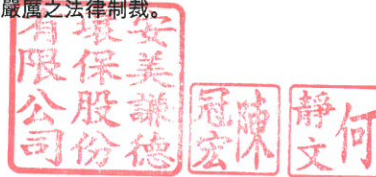 嚴厲之法律制裁。
安美謙德
環保股份
有限公司
陳冠宏
何靜文